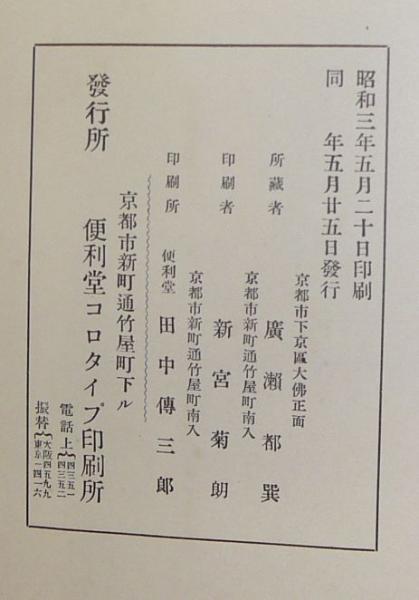 昭和三年五月二十日印刷
同　年五月廿五日發行
京都市下京區大佛正面
所藏者　廣瀨都巽
京都市新町通竹屋町南入
印刷者　新宮菊朗
京都市新町通竹屋町南入
印刷所　便利堂　田中傳三郎
京都市新町通竹屋町下ル
發行所　便利堂コロタイプ印刷所
電話上｛四三五一
四三五二
振替｛大阪四五九九
東京一四一六